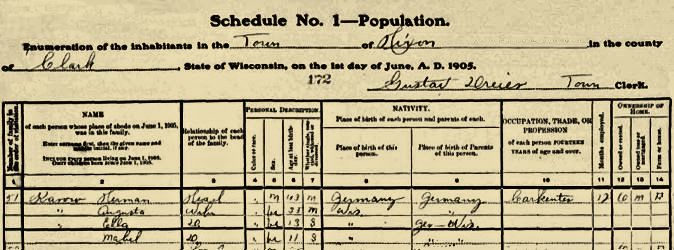 Schedule No. 1—Population.
Enumeration of the inhabitants in the Town of Hixon in the county
of Clark, State of Wisconsin, on the 1st day of June, A. D. 1905.
172
Gustav Dreier Town Clerk.
NAME
of each person whose place of abode on June 1, 1905, was in this family.
Enter surname first, then the given name and middle initial, if any.
Include every person living on June 1, 1905.
Omit children born since June 1, 1905.
Relationship of each person to the head of the family.
PERSONAL DESCRIPTION.
Color or race.
Sex.
Age at last birthday.
NATIVITY.
Place of birth of each person and parents of each.
Place of birth of this person.
Place of birth of Parents of this person.
OCCUPATION, TRADE, OR PROFESSION
of each person FOURTEEN YEARS of age and over.
Months employed.
OWNERSHIP OF HOME.
Owned or rented.
Farm or house.
1 2 3 4 5 6 7 8 9 10 11 12 13 14
51 Karow Herman Head " M 43 M Germany Germany Carpenter 12 O M
" Augusta Wife " Fe 33 M Wis. "
" Ella D " Fe 13 S " Ger—Wis.
" Mabel D " Fe 11 S "